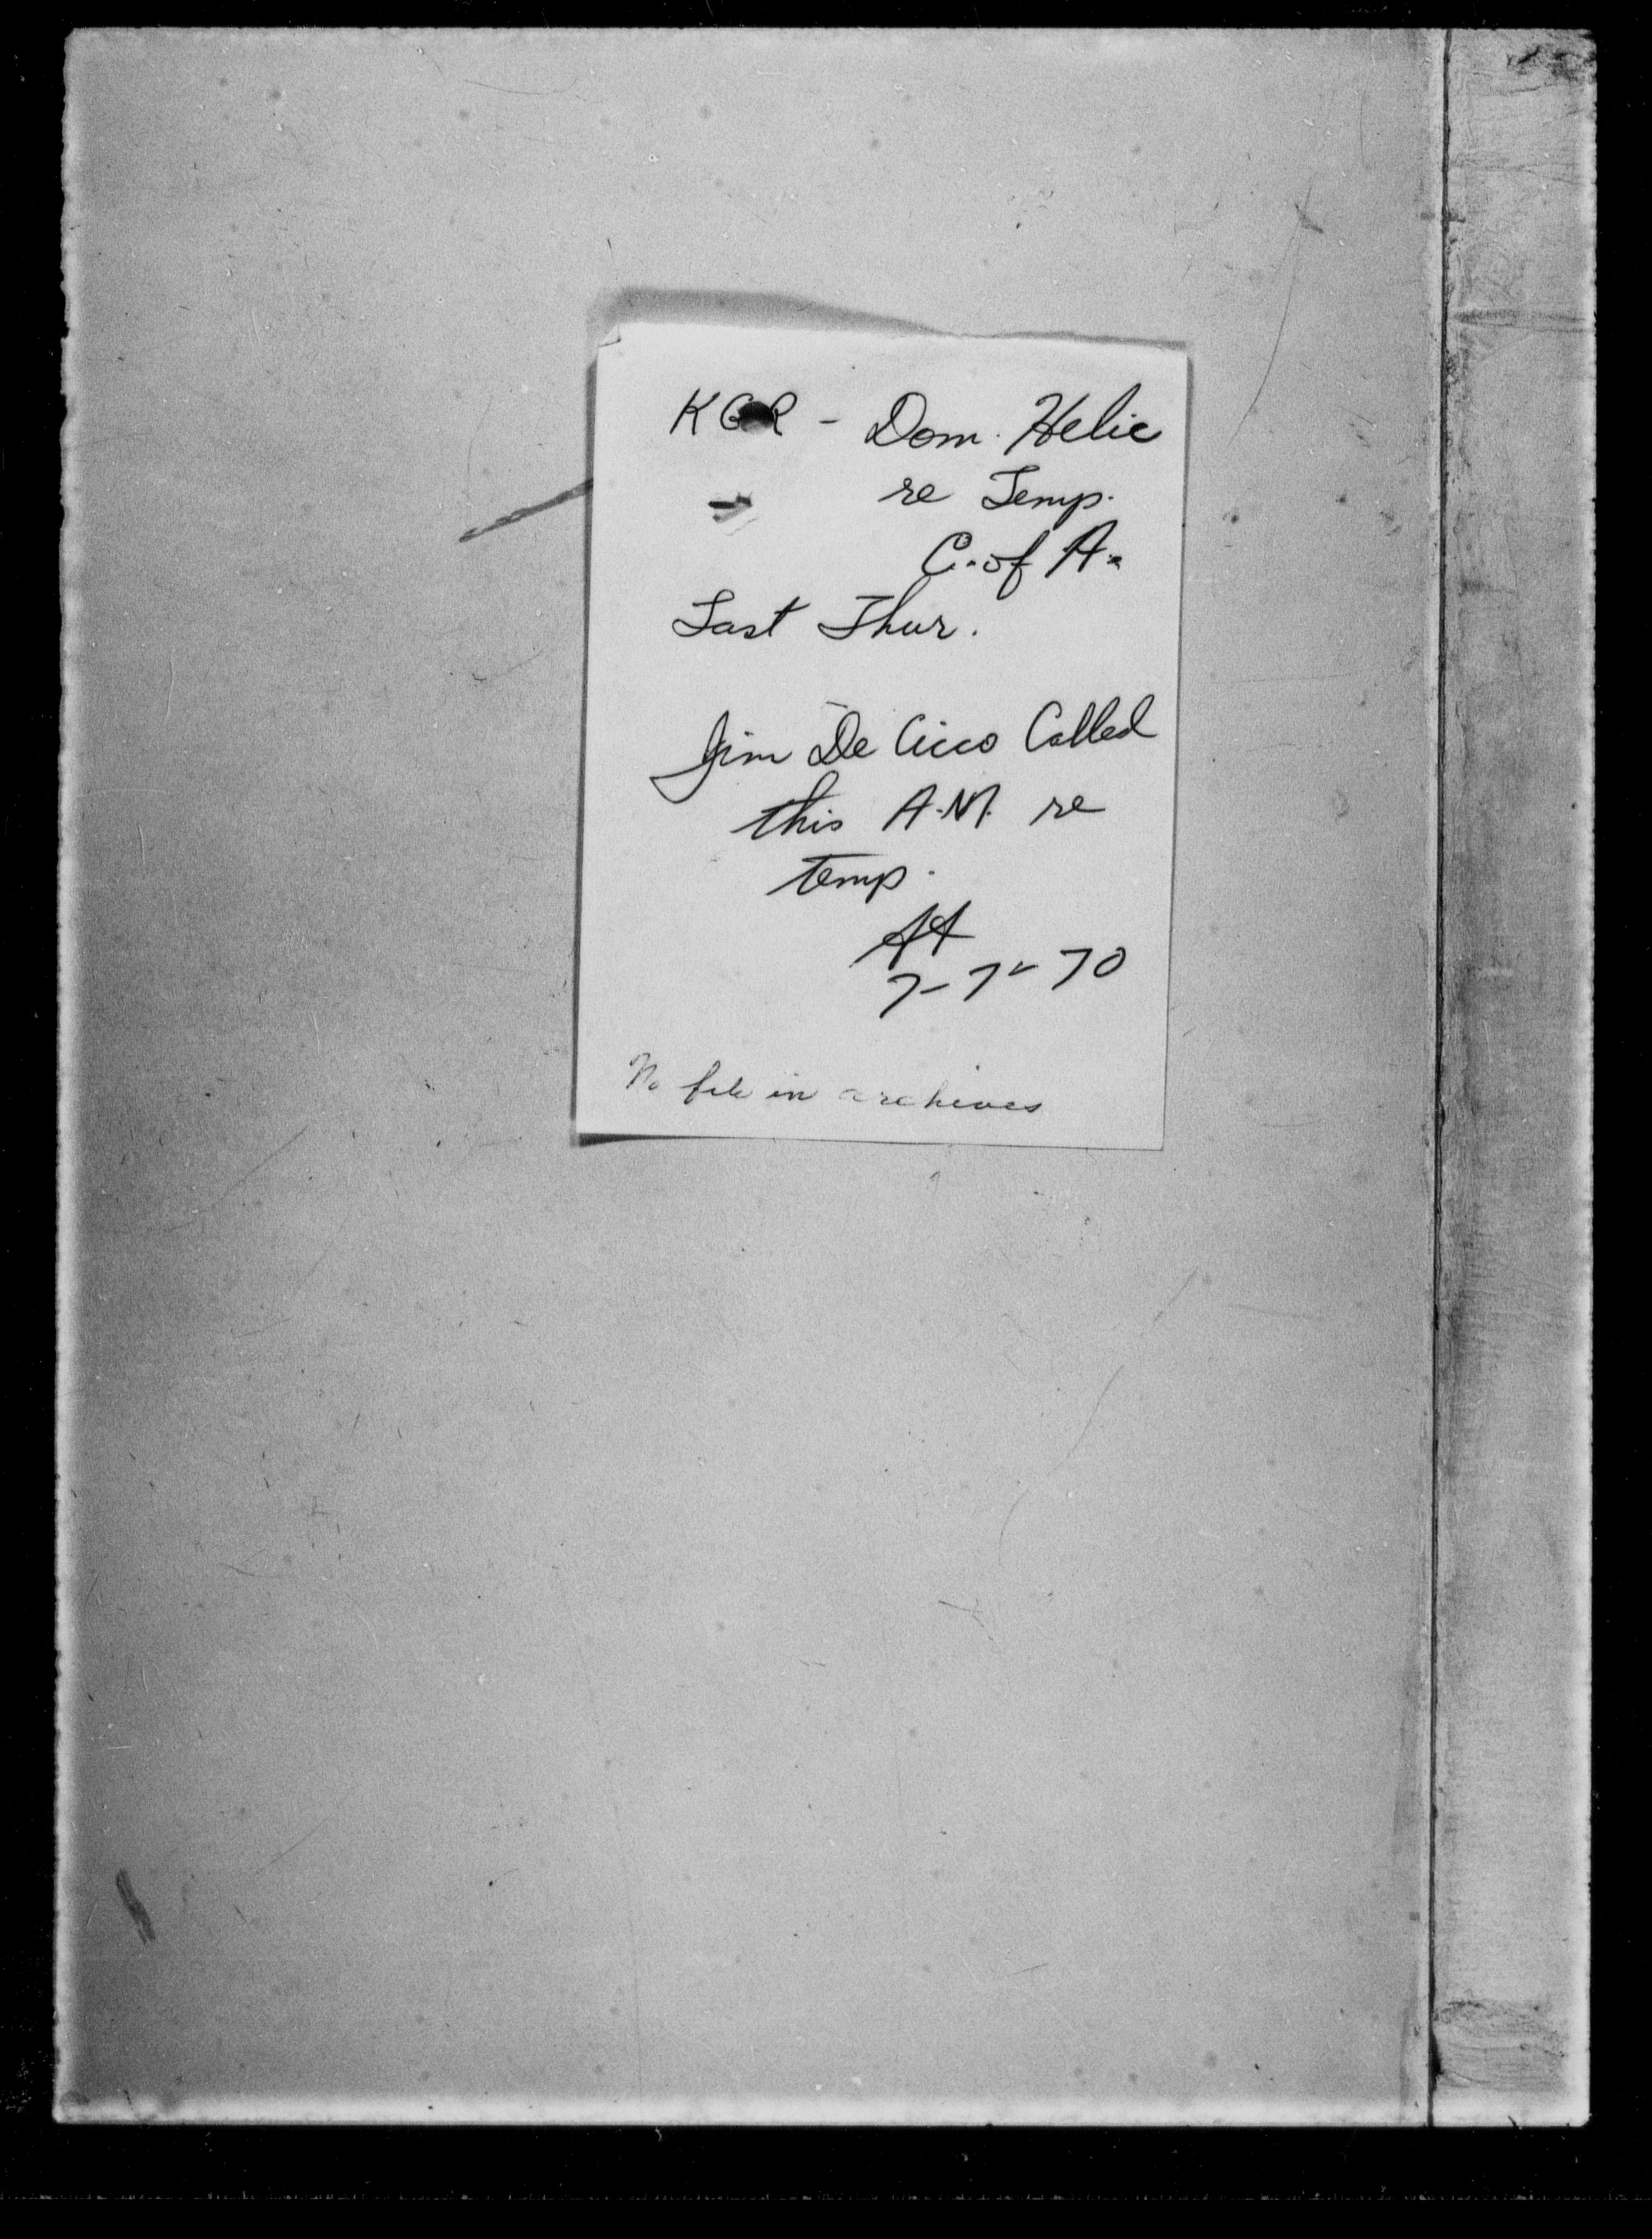 KGR - Dom. Helie
re Temp.
C. of A.
Last Thur.
Jim De Cicco Called
this A.M. re
temp.
7-7-70
No file in archives